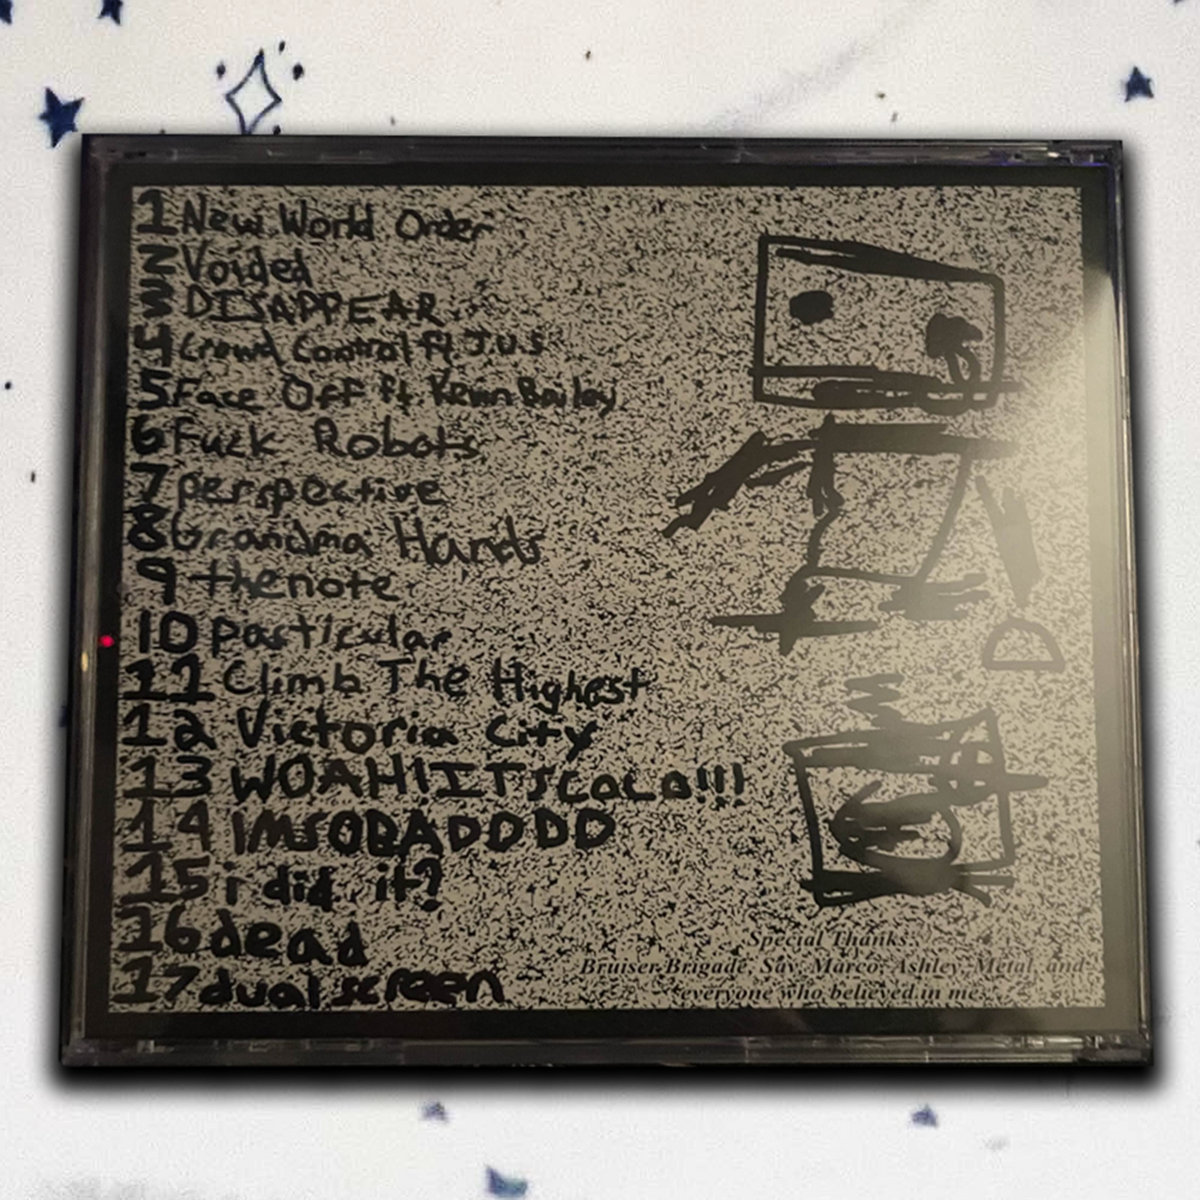 1 New World Order
2 Voided
3 DISAPPEAR
4 Crowd Control ft J.U.S
5 Face Off ft. Kevin Bailey
6 Fuck Robots
7 perspective
8 Grandma Hands
9 thenote
10 particular
11 Climb The Highest
12 Victoria City
13 WOAH!ITSCOLO!!!
14 IMSOBADODO
15 i did it?
16 dead
17 dual screen
Special Thanks:
Bruiser Brigade, Sav, Marco, Ashley, Metal, and
everyone who believed in me.